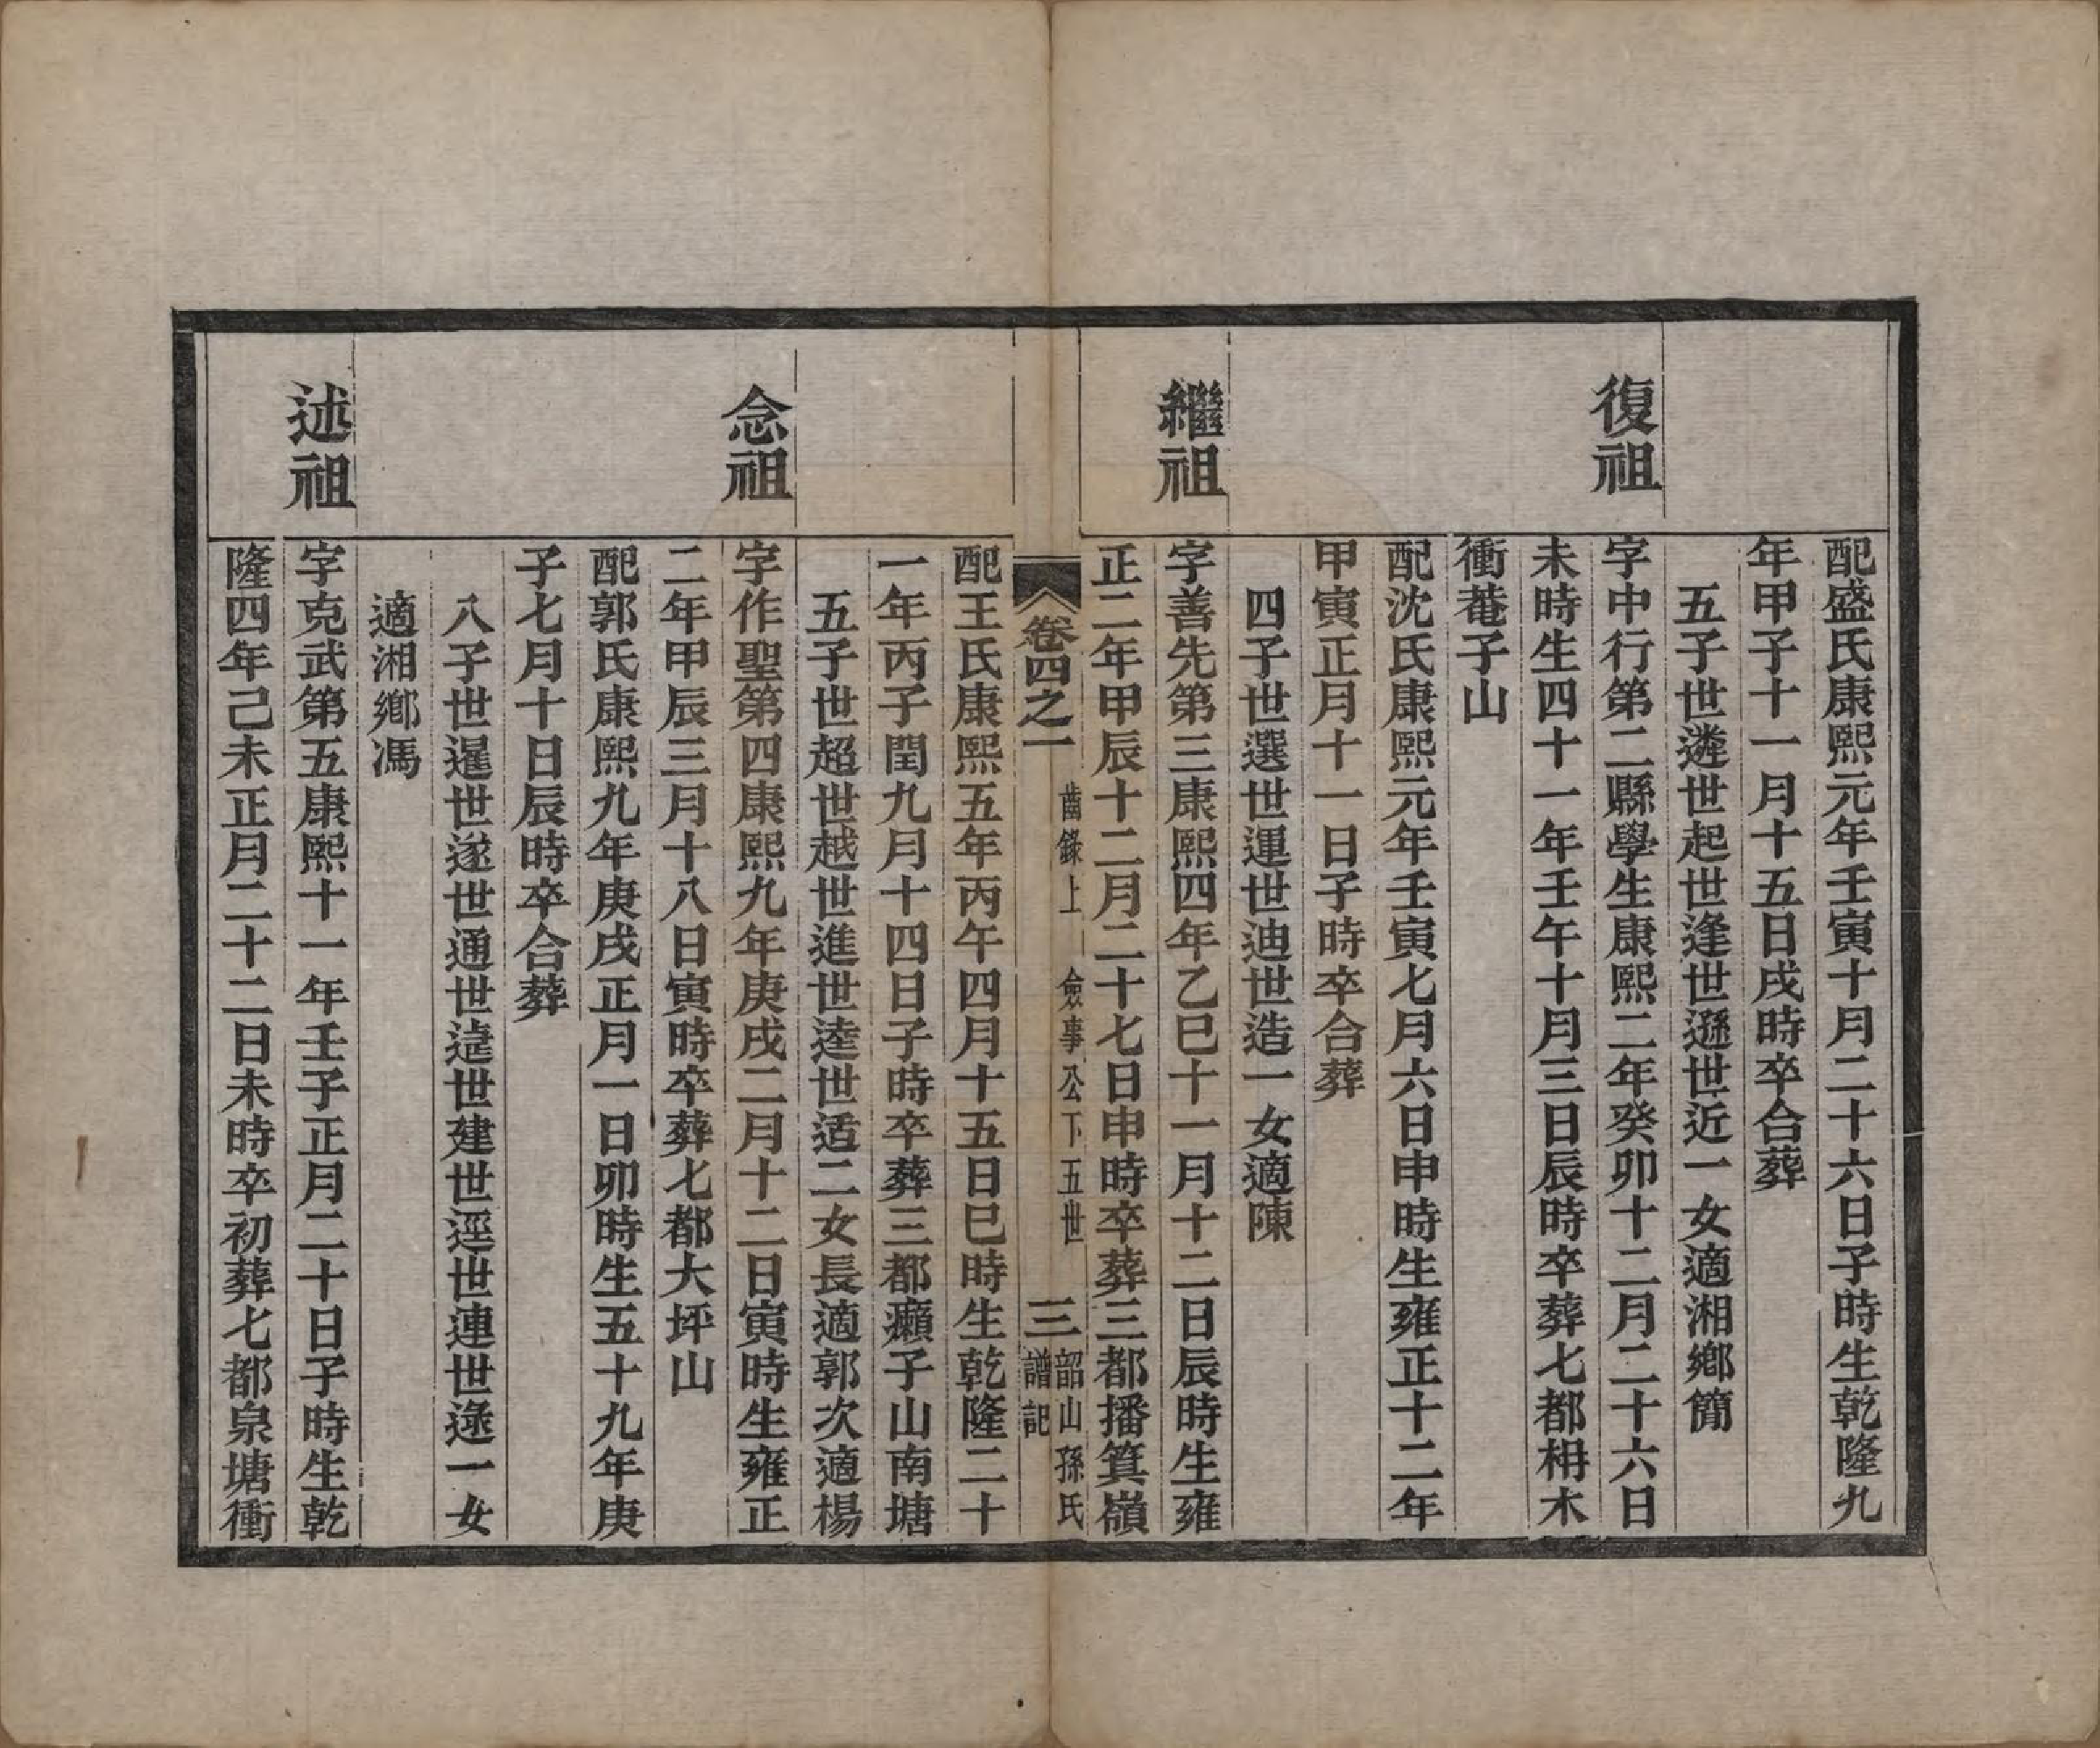 配盛氏康熙元年壬寅十月二十六日子時生乾隆九
年甲子十一月十五日戌時卒合葬
五子世遴世起世逢世遜世近一女適湘鄉簡
復祖
字中行第二縣學生康熙二年癸卯十二月二十六日
未時生四十一年壬午十月三日辰時卒葬七都枏木
衝菴子山
配沈氏康熙元年壬寅七月六日申時生雍正十二年
甲寅正月十一日子時卒合葬
四子世選世運世迪世造一女適陳
繼祖
字善先第三康熙四年乙巳十一月十二日辰時生雍
正二年甲辰十二月二十七日申時卒葬三都播箕嶺
卷四之一 齒錄上 僉事公下五世 三 韶山孫氏譜記
配王氏康熙五年丙午四月十五日巳時生乾隆二十
一年丙子閏九月十四日子時卒葬三都癩子山南塘
五子世超世越世進世逵世适二女長適郭次適楊
念祖
字作聖第四康熙九年庚戌二月十二日寅時生雍正
二年甲辰三月十八日寅時卒葬七都大坪山
配郭氏康熙九年庚戌正月一日卯時生五十九年庚
子七月十日辰時卒合葬
八子世暹世遂世通世達世建世逕世連世逐一女
適湘鄉馮
述祖
字克武第五康熙十一年壬子正月二十日子時生乾
隆四年己未正月二十二日未時卒初葬七都泉塘衝